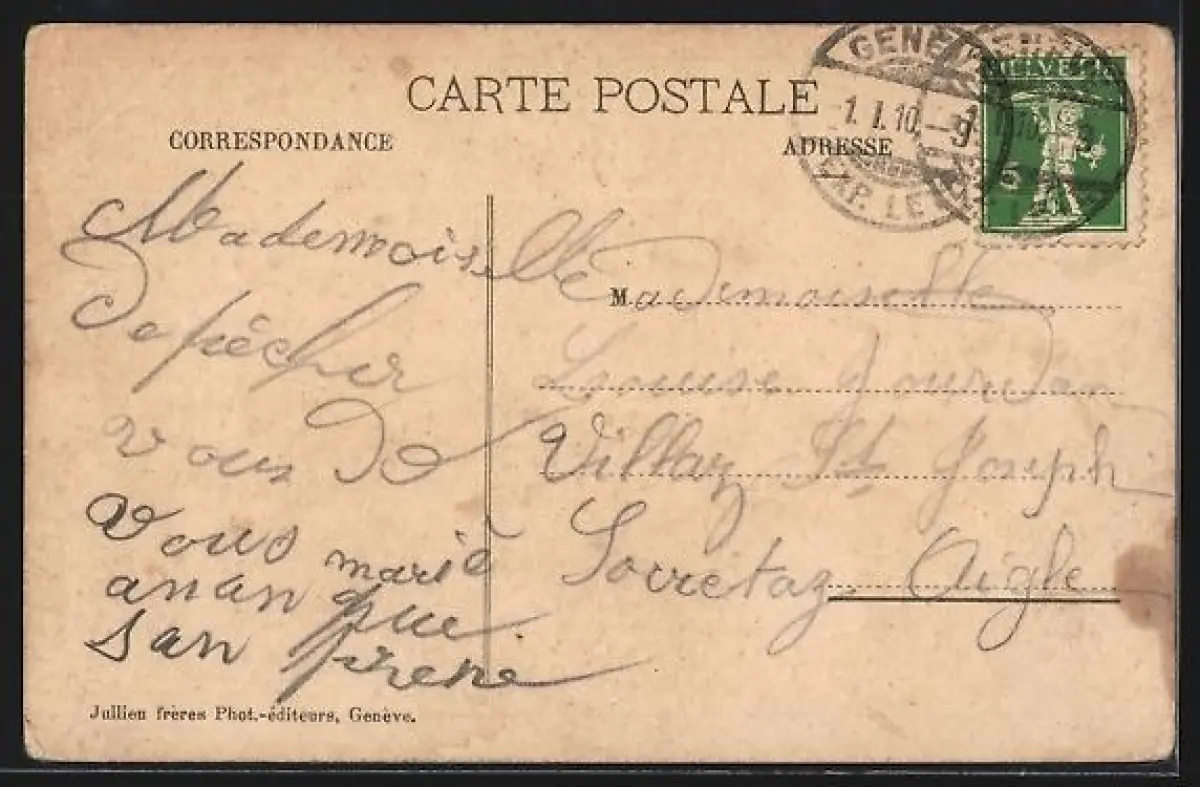 CARTE POSTALE
CORRESPONDANCE
ADRESSE
GENÈVE
1. I. 10. — 9
EXP. LE
HELVETIA
5
Mademoiselle
Depécher
vous De
vous marié
avan que
san prene
Mademoiselle
Louise Jourdan
Villa St Joseph
Sorretaz Aigle
Jullien frères Phot.-éditeurs, Genève.